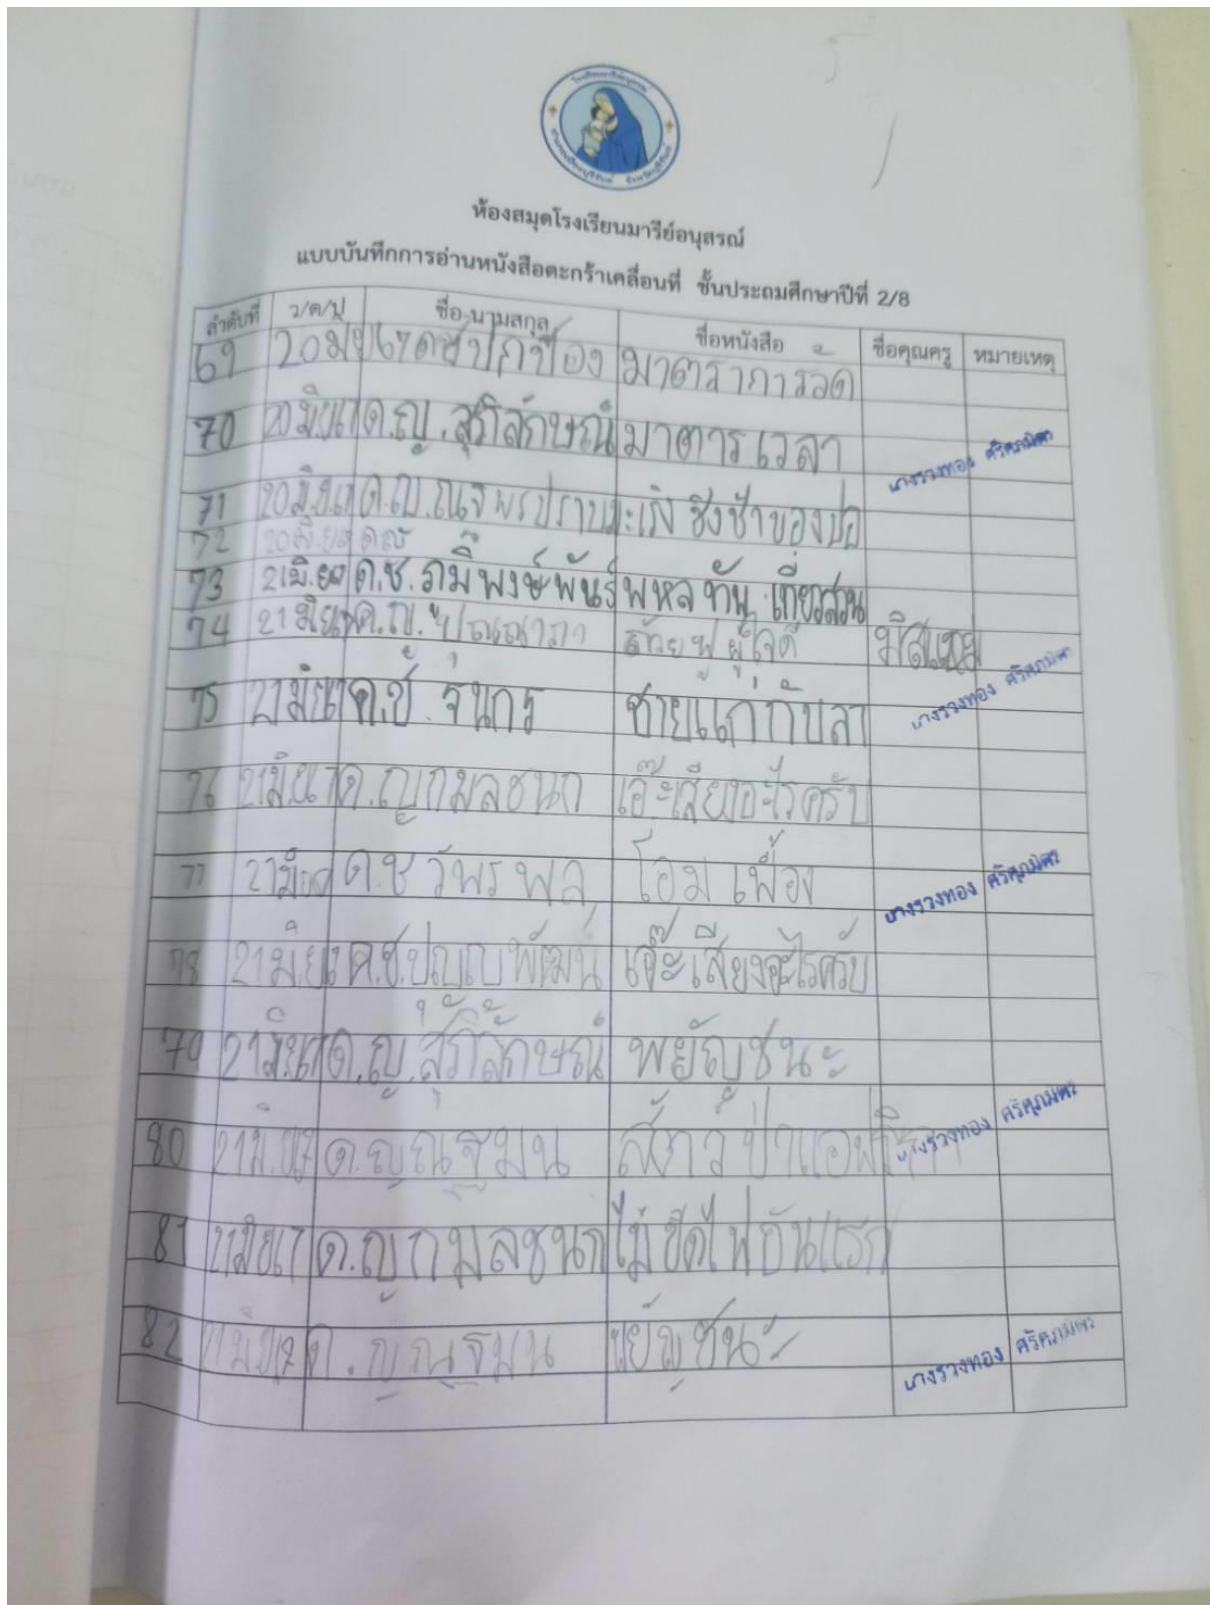 ห้องสมุดโรงเรียนมารีย์อนุสรณ์
แบบบันทึกการอ่านหนังสือตะกร้าเคลื่อนที่ ชั้นประถมศึกษาปีที่ 2/8
ลำดับที่ ว/ด/ป ชื่อ-นามสกุล ชื่อหนังสือ ชื่อคุณครู หมายเหตุ
69 20 มิย 67 ด.ช ปกป้อง มาตราการวัด
70 20 มิ.ย ด.ญ. สุภิลักษณ์ มาตาร เวลา
นางรวงทอง ศรีศุภมิตร
71 20 มิ.ย ด.ญ. ชิงช้าของปอ
72 20 มิ.ย
73 21 มิ.ย ด.ช. ภูมิพงษ์พันธุ์ พหล เที่ยวสวน
74 21 มิ.ย ด.ญ. ปุณณาภา ผู้ใจดี มิสแหม่ม
นางรวงทอง ศรีศุภมิตร
75 21 มิย ด.ช. ชายแก่กับลา
76 21 มิ.ย ด.ญ กมลชนก เอ๊ะเสียงอะไรครับ
77 21 มิย ด.ช วัพรพล โอมเพี้ยง
นางรวงทอง ศรีศุภมิตร
78 21 มิ.ย ด.ช. ปุญญพัฒน์ เอ๊ะเสียงอะไรครับ
79 21 มิ.ย ด.ญ. สุภิลักษณ์ พยัญชนะ
80 21 มิ.ย ด.ญ ณฐมน สัตว์ป่าแอฟริกา
นางรวงทอง ศรีศุภมิตร
81 21 มิย ด.ญ กมลชนก ไม้ขีดไฟอันแรก
82 21 มิ.ย ด.ญ ณฐมน พยัญชนะ
นางรวงทอง ศรีศุภมิตร